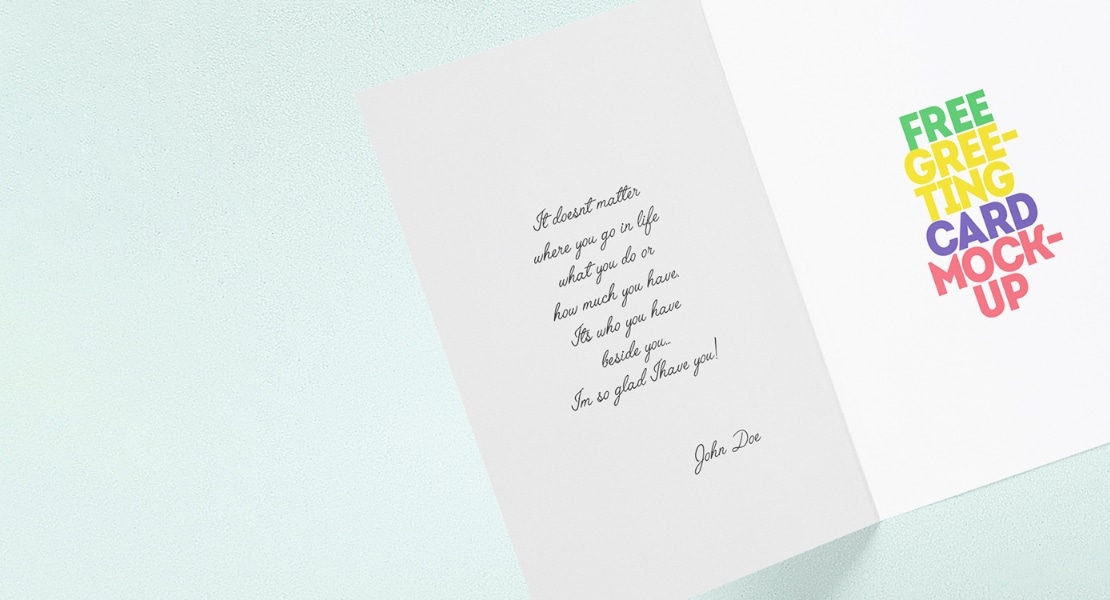 It doesnt matter
where you go in life
what you do or
how much you have.
It's who you have
beside you...
Im so glad I have you!
John Doe
FREE
GREE-
TING
CARD
MOCK-
UP